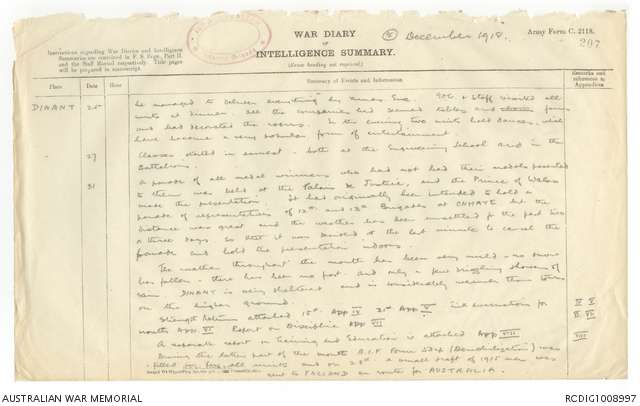 WAR DIARY
or
INTELLIGENCE SUMMARY.
(Erase heading not required.)
December 1918.
Army Form C. 2118.
207
Instructions regarding War Diaries and Intelligence
Summaries are contained in F. S. Regs., Part II.
and the Staff Manual respectively. Title pages
will be prepared in manuscript.
Place
Date
Hour
Summary of Events and Information
Remarks and
references to
Appendices
DINANT 25th he managed to deliver everything by Xmas Eve. G.O.C. & Staff visited all
units at dinner. All the companies had secured tables and forms
and had decorated the rooms. In the evening two units held dances, which
have become a very popular form of entertainment.
27 Classes started in earnest - both at the Engineering School and in the
Battalions.
31 A parade of all medal winners who had not had their medals presented
to them was held at the Palais de Justice, and the Prince of Wales
made the presentation. It had originally been intended to hold a
parade of representatives of 12th and 13th Brigades at but the
distance was great and the weather has been unsettled for the past two
or three days. So that it was decided at the last minute to cancel the
parade and hold the presentation indoors.
The weather throughout the month has been very mild - no snow
has fallen - there has been no frost. And only a few drizzling showers of
rain. DINANT is very sheltered and is considerably warmer than towns
on the higher ground.
Strength Returns attached 15th APP IV 31st APP V evacuations for
month APP. VI Report on Discipline APP VII
A separate report on Training and Education is attached APP VIII
During the latter part of the month A.I.F. Form (Demobilization) was
filled all units and on 28th a small draft of 1915 men was
sent to ENGLAND en route for AUSTRALIA.
IV V
VI VII
VIII
AUSTRALIAN WAR MEMORIAL
RCDIG1008997